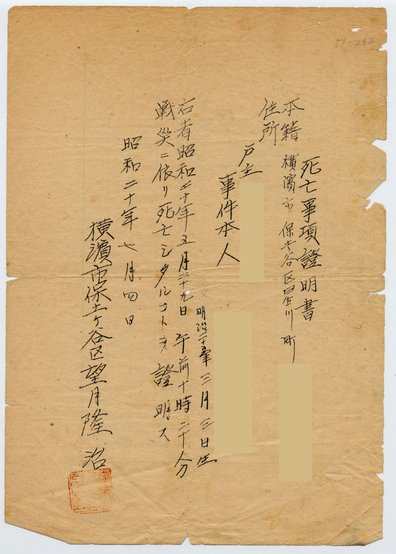 死亡事項證明書
本籍
住所
横濱市保土ケ谷区星川町
戸主
事件本人
三月三日生
右者昭和二十年五月二十九日午前十時二十分
戦災ニ依リ死亡シタルコトヲ證明ス
昭和二十年七月四日
横濱市保土ケ谷区望月隆治